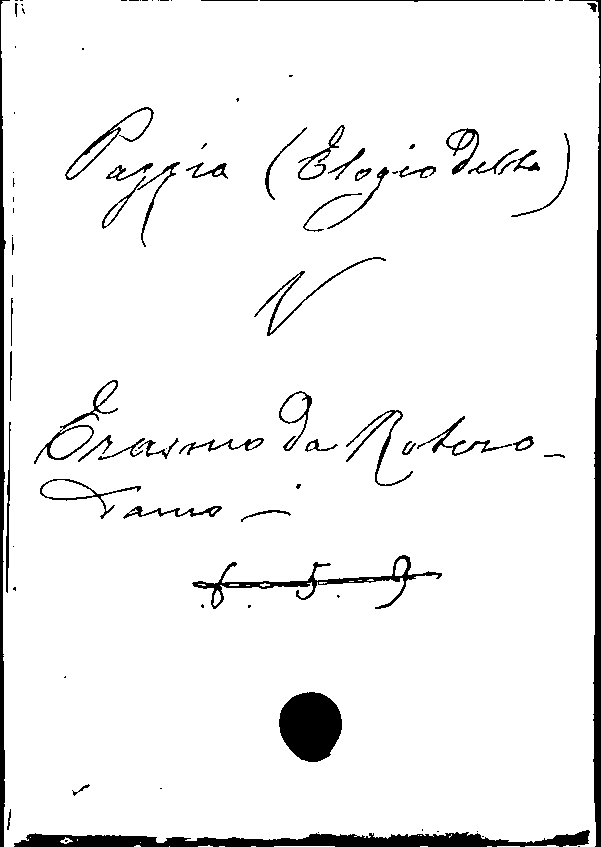 Pazzia (Elogio della)
V
Erasmo da Rotero-
damo -
6. 5. 9